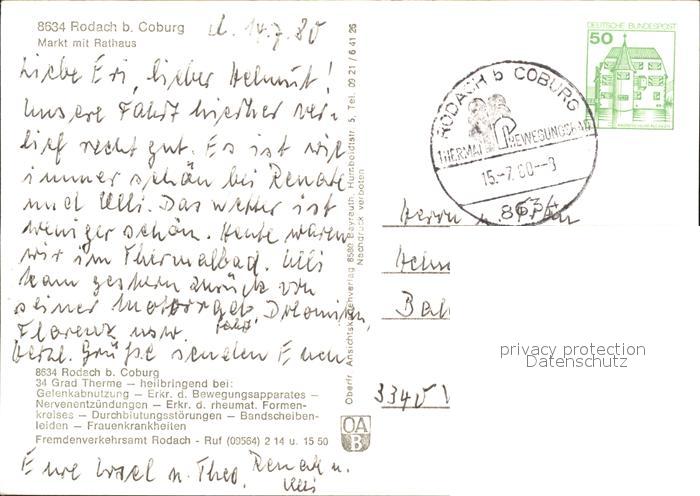 8634 Rodach b. Coburg
Markt mit Rathaus
d. 14.7.80
Liebe Eri, lieber Helmut!
Unsere Fahrt hierher ver-
lief recht gut. Es ist wie
immer schön bei Renate
und Ulli. Das Wetter ist
weniger schön. Heute waren
wir im Thermalbad. Ulli
kam gestern zurück von
seiner Motorrad Dolomiten,
fahrt
Florenz usw.
Herzl. Grüße senden Euch
8634 Rodach b. Coburg
34 Grad Therme – heilbringend bei:
Gelenkabnutzung – Erkr. d. Bewegungsapparates –
Nervenentzündungen – Erkr. d. rheumat. Formen-
kreises – Durchblutungsstörungen – Bandscheiben-
leiden – Frauenkrankheiten
Fremdenverkehrsamt Rodach - Ruf (09564) 2 14 u. 15 50
Eure u. Theo, Renate u.
Ulli
Oberfr. Ansichtskartenverlag 8580 Bayreuth, 5, Tel. 09 21 / 6 41 26
Nachdruck verboten
OA
B
DEUTSCHE BUNDESPOST
50
RODACH b COBURG
THERMAL BEWEGUNGSBAD
15.-7.80--9
8634
Herrn u. Frau
3340
privacy protection
Datenschutz